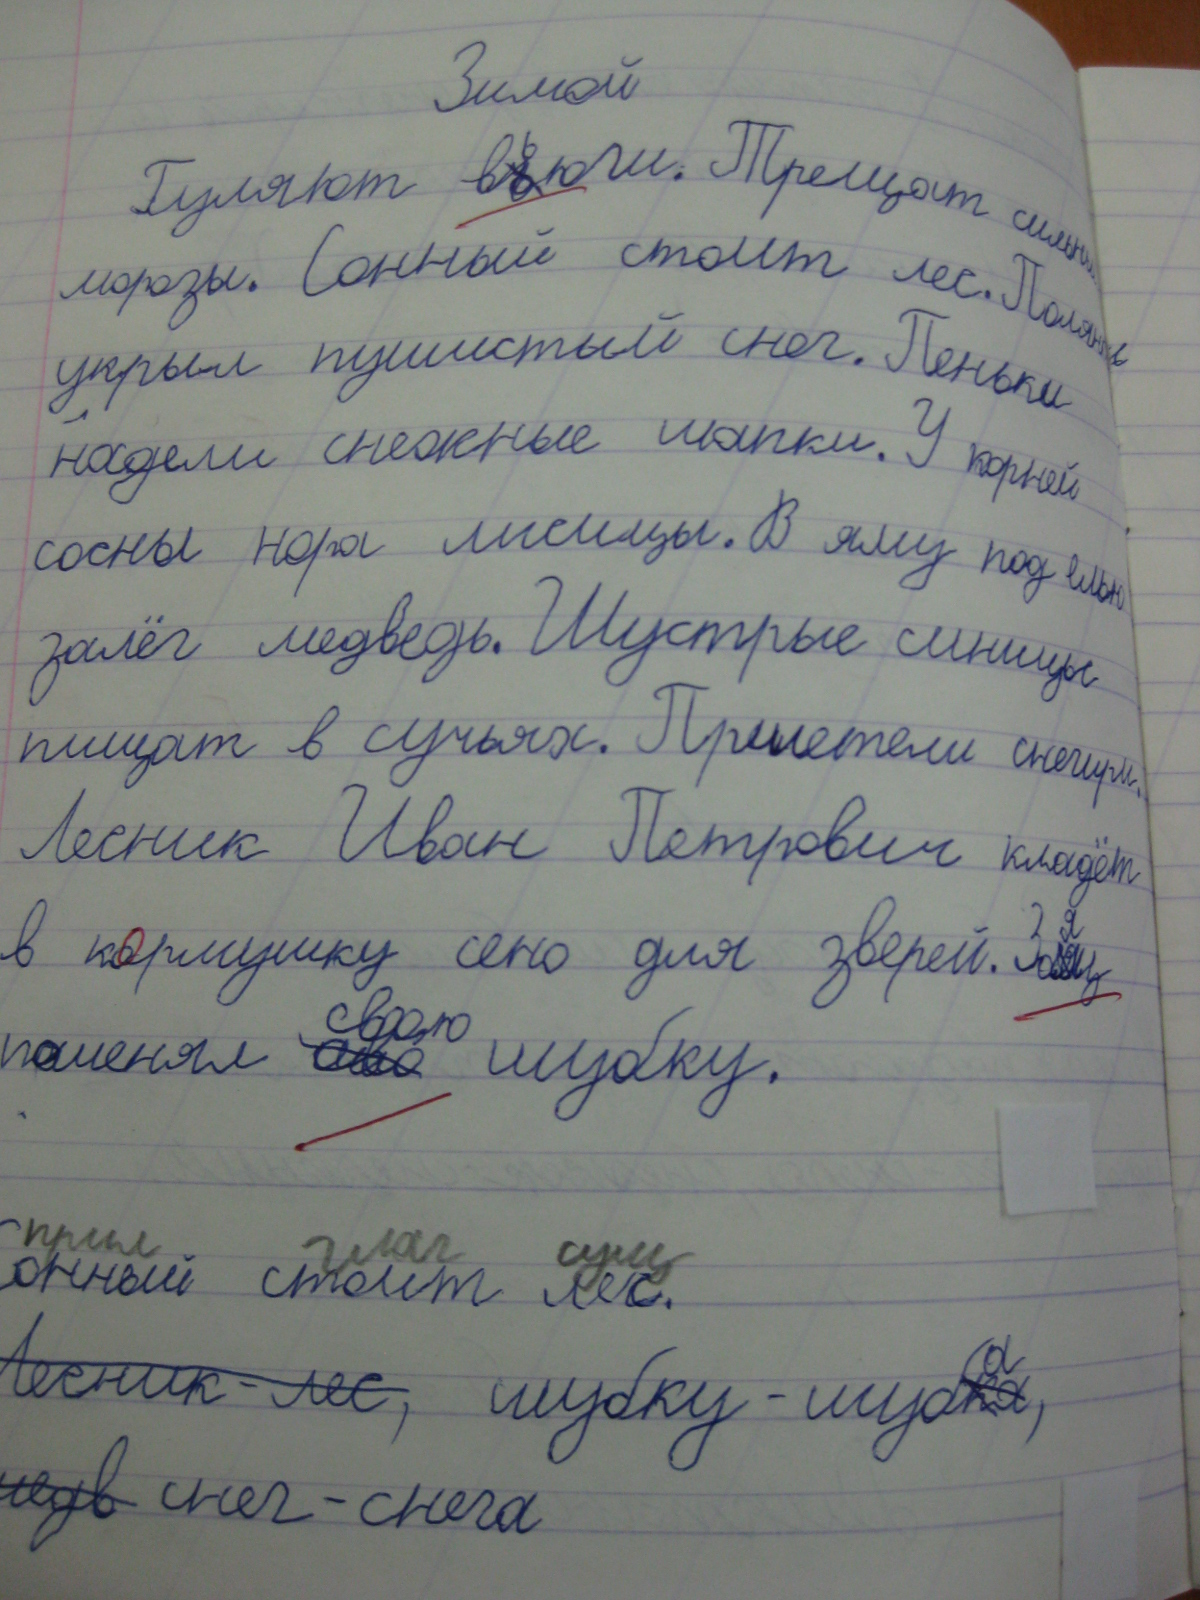 Зимой
Гуляют вьюги. Трещат сильные
морозы. Сонный стоит лес. Полянки
укрыл пушистый снег. Пеньки
надели снежные шапки. У корней
сосны нора лисицы. В яму под елью
залёг медведь. Шустрые синицы
пищат в сучьях. Прилетели снегири.
Лесник Иван Петрович кладёт
в кормушку сено для зверей. Заяц
поменял свою шубку.
прил глаг сущ
Сонный стоит лес.
Лесник - лес, шубку - шуба,
медв снег - снега